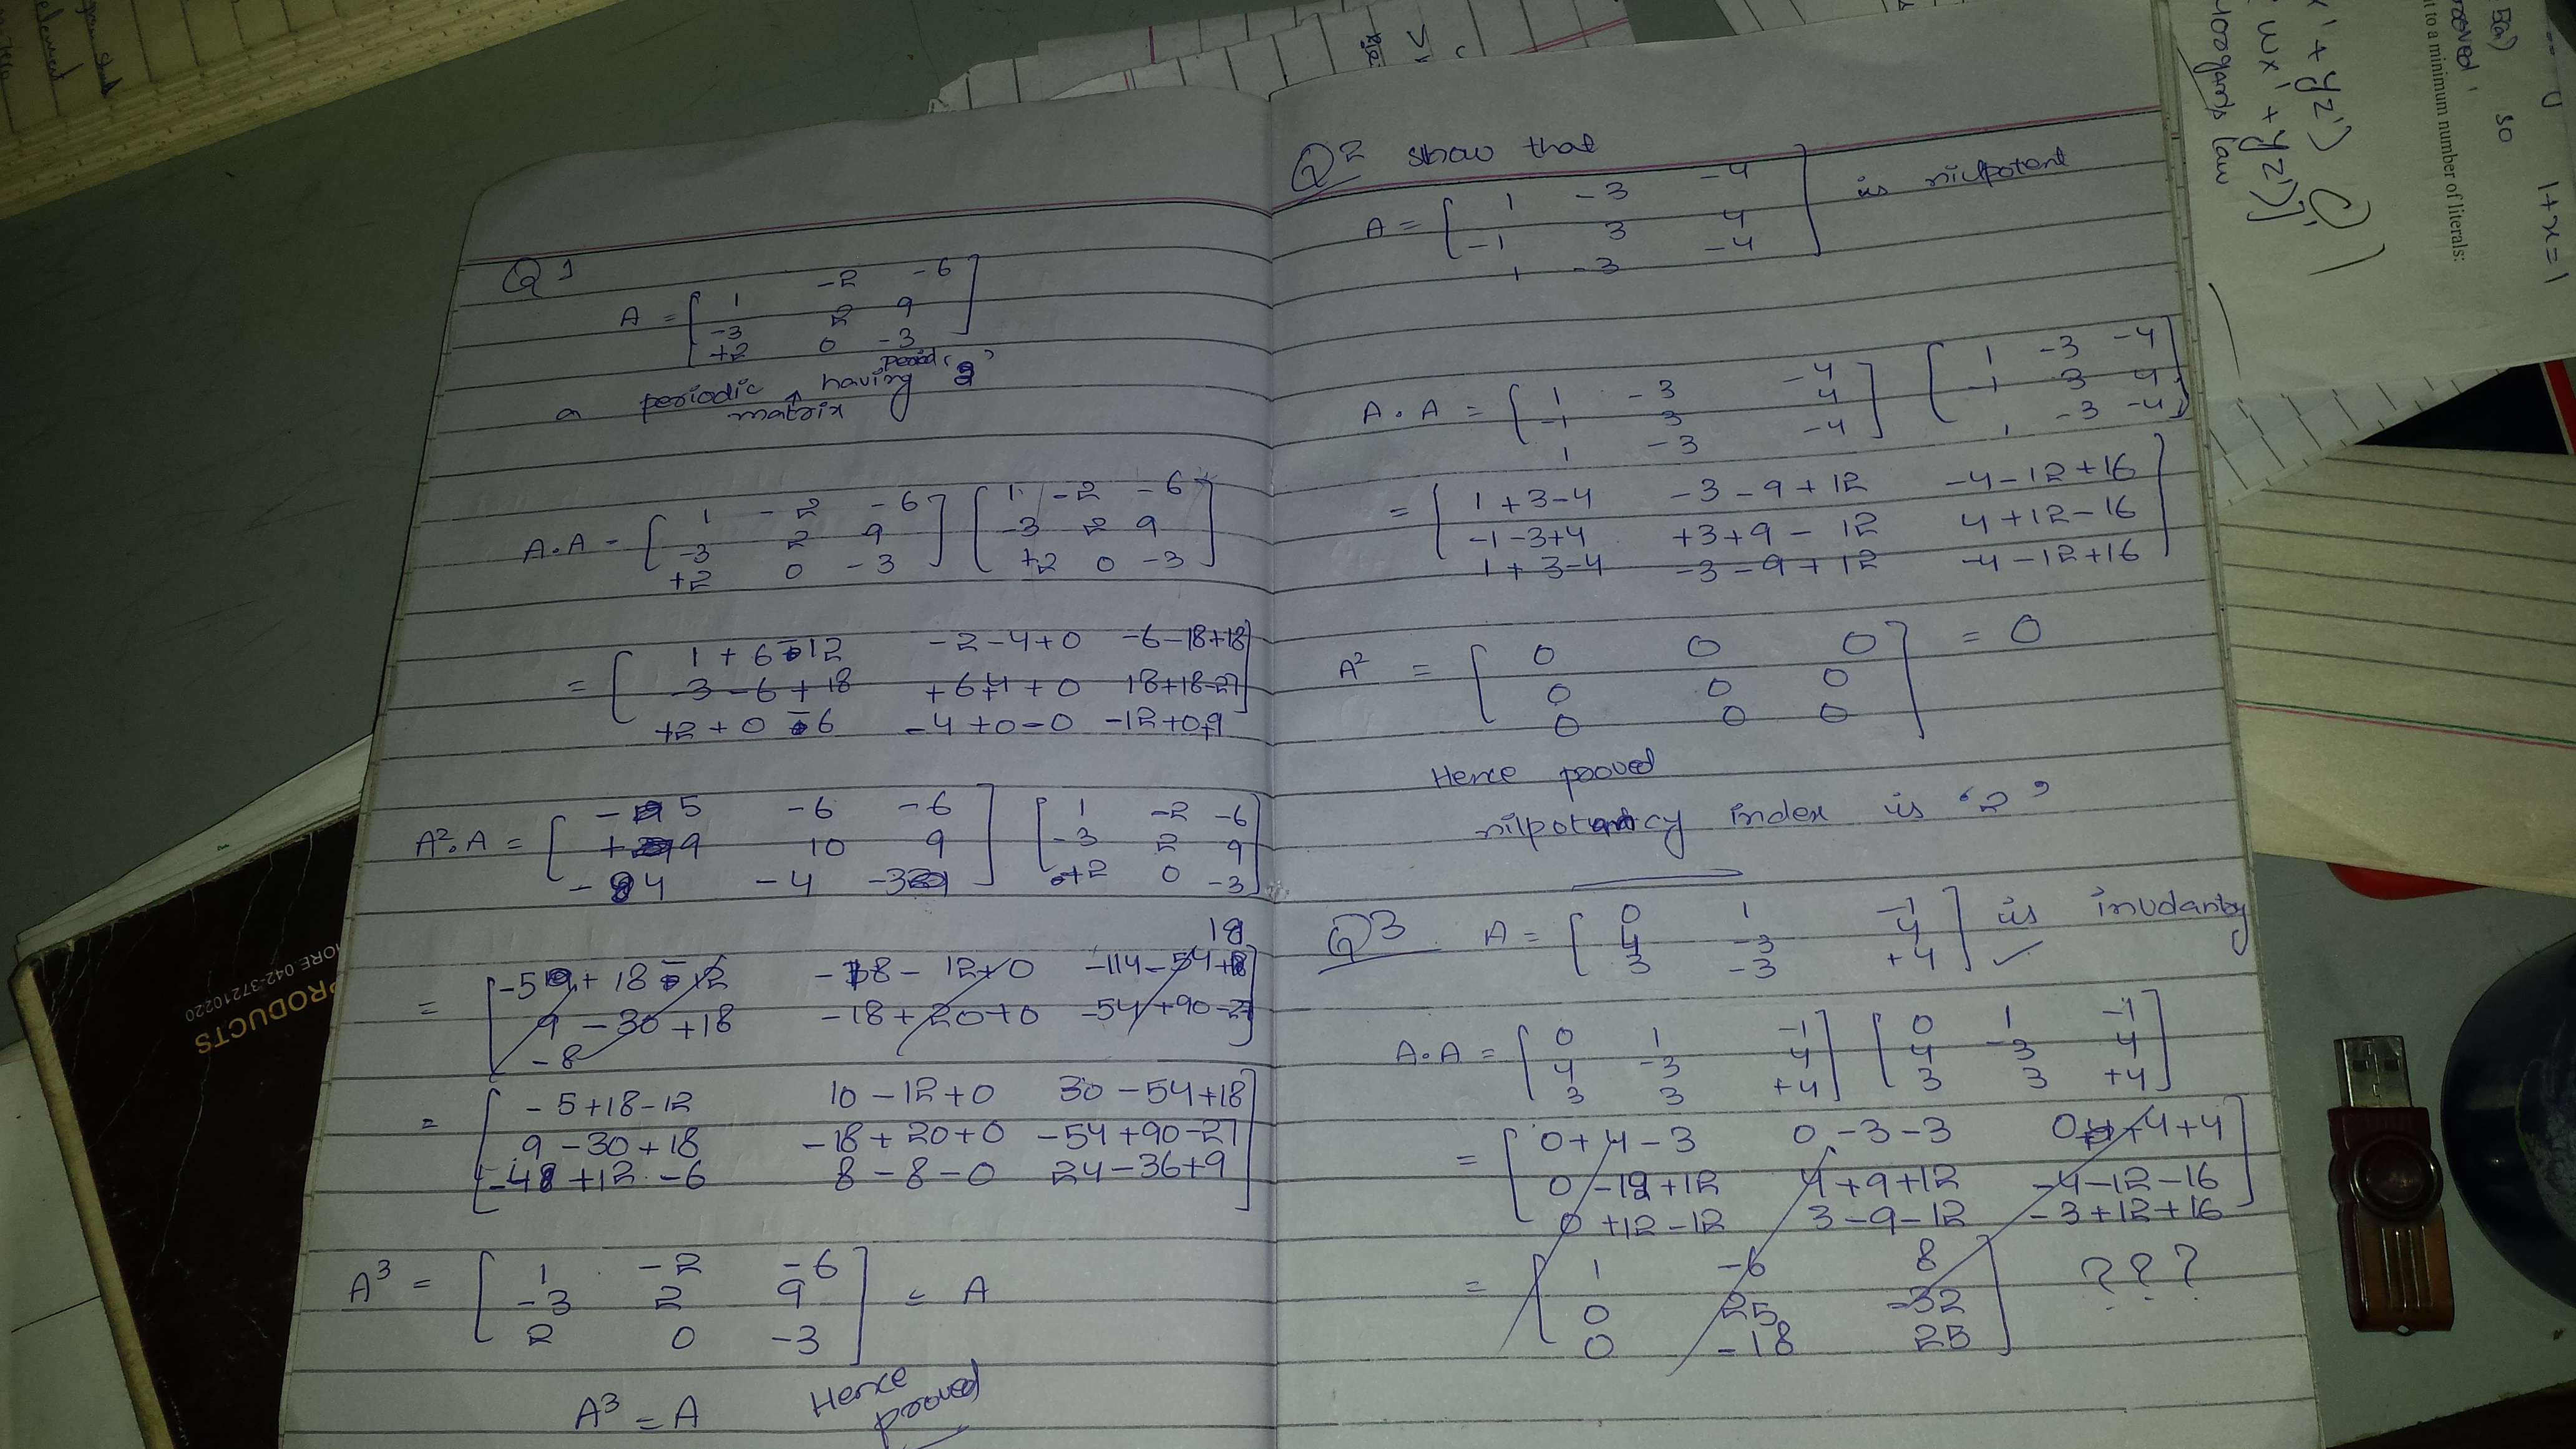 Q1
A = [ 1 -2 -6
-3 2 9
+2 0 -3 ]
a periodic matrix having period '2'
A.A = [ 1 -2 -6 ] [ 1 -2 -6 ]
-3 2 9 -3 2 9
+2 0 -3 +2 0 -3
= [ 1+6-12 -2-4+0 -6-18+18 ]
-3-6+18 +6+4+0 18+18-27
+2+0-6 -4+0-0 -12+0+9
A².A = [ -5 -6 -6 ] [ 1 -2 -6 ]
+9 10 9 -3 2 9
-4 -4 -3 +2 0 -3
18
= [ -5+18-12 -18-12+0 -114-54+18 ]
9-30+18 -18+20+0 -54+90-27
-8
= [ -5+18-12 10-12+0 30-54+18 ]
9-30+18 -18+20+0 -54+90-27
-4+12-6 8-8-0 24-36+9
A³ = [ 1 -2 -6 ] = A
-3 2 9
2 0 -3
A³ = A Hence proved
Q2 show that
A = [ 1 -3 -4 ] is nilpotent
-1 3 4
1 -3 -4
A.A = [ 1 -3 -4 ] [ 1 -3 -4 ]
-1 3 4 -1 3 4
1 -3 -4 1 -3 -4
= [ 1+3-4 -3-9+12 -4-12+16 ]
-1-3+4 +3+9-12 4+12-16
1+3-4 -3-9+12 -4-12+16
A² = [ 0 0 0 ] = 0
0 0 0
0 0 0
Hence proved
nilpotency index is '2'
Q3 A = [ 0 1 -1 ] is
4 -3 4
3 -3 +4
A.A = [ 0 1 -1 ] [ 0 1 -1 ]
4 -3 4 4 -3 4
3 3 +4 3 3 +4
= [ 0+4-3 0-3-3 0+4+4 ]
0-12+12 4+9+12 -4-12-16
0+12-12 3-9-12 -3+12+16
= [ 1 -6 8 ] ???
0 25 -32
0 -18 25
x'+yz')
wx'+yz')]'
law
t to a minimum number of literals:
so
1+x=1
element
ORE.042-37210220
PRODUCTS